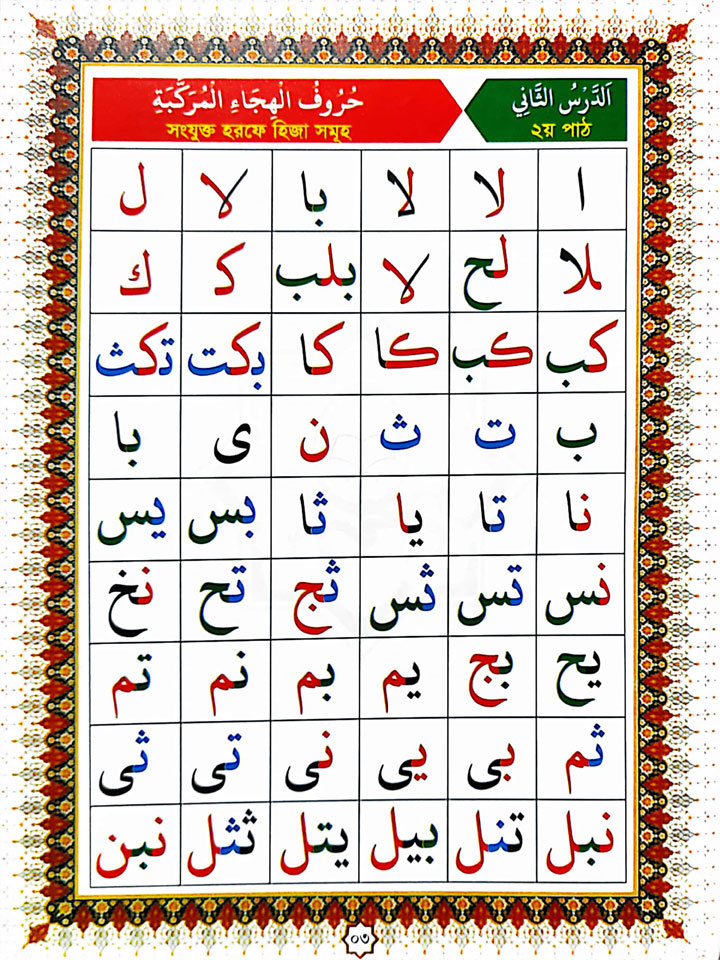 اَلدَّرْسُ الثَّانِي
২য় পাঠ
حُرُوفُ الْهِجَاءِ الْمُرَكَّبَةِ
সংযুক্ত হরফে হিজা সমূহ
ا لا لا با لا ل
ملا لح لا بلب ك ك
كب كب كا كا بكت تكث
ب ت ث ن ى با
نا تا يا ثا بس يس
نس تس ثس ثج تح نخ
يح بج يم بم نم تم
ثم بى يى نى تى ثى
نبل تنل بيل يتل ثثل نبن
০৩